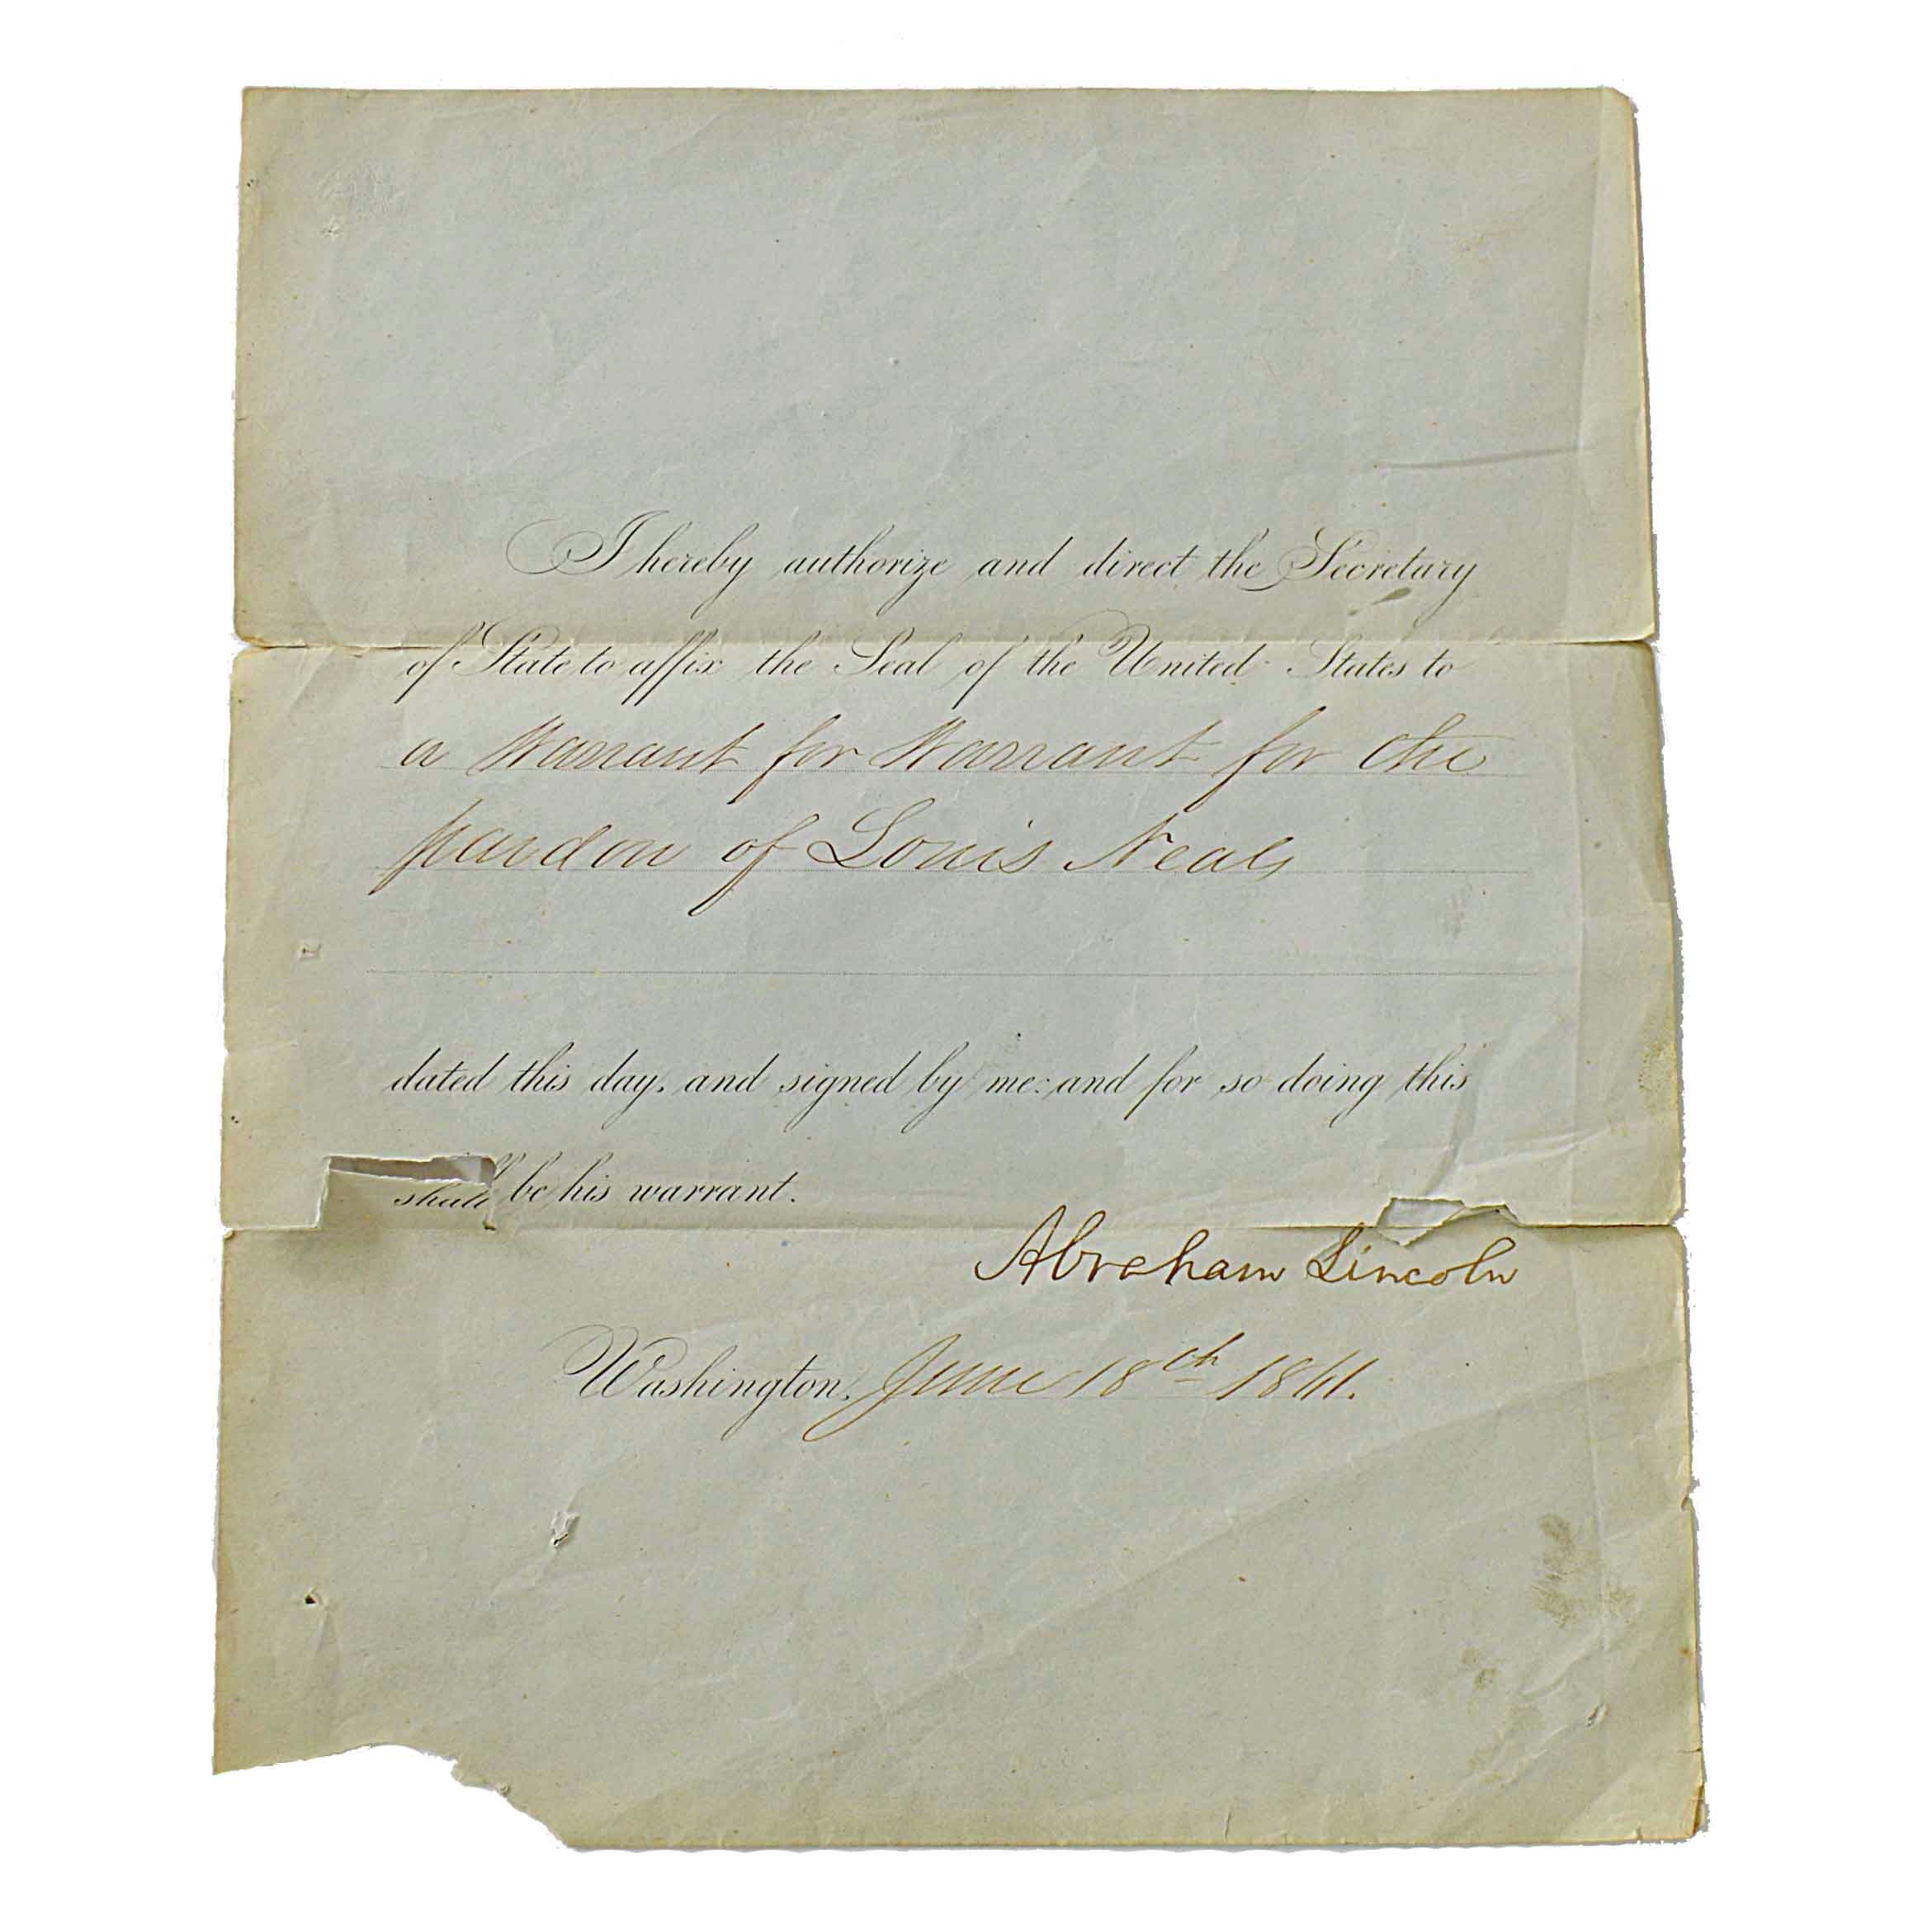 I hereby authorize and direct the Secretary
of State to affix the Seal of the United States to
a Warrant for Warrant for the
pardon of Louis Neals
dated this day, and signed by me: and for so doing this
shall be his warrant.
Abraham Lincoln
Washington, June 18th 1861.